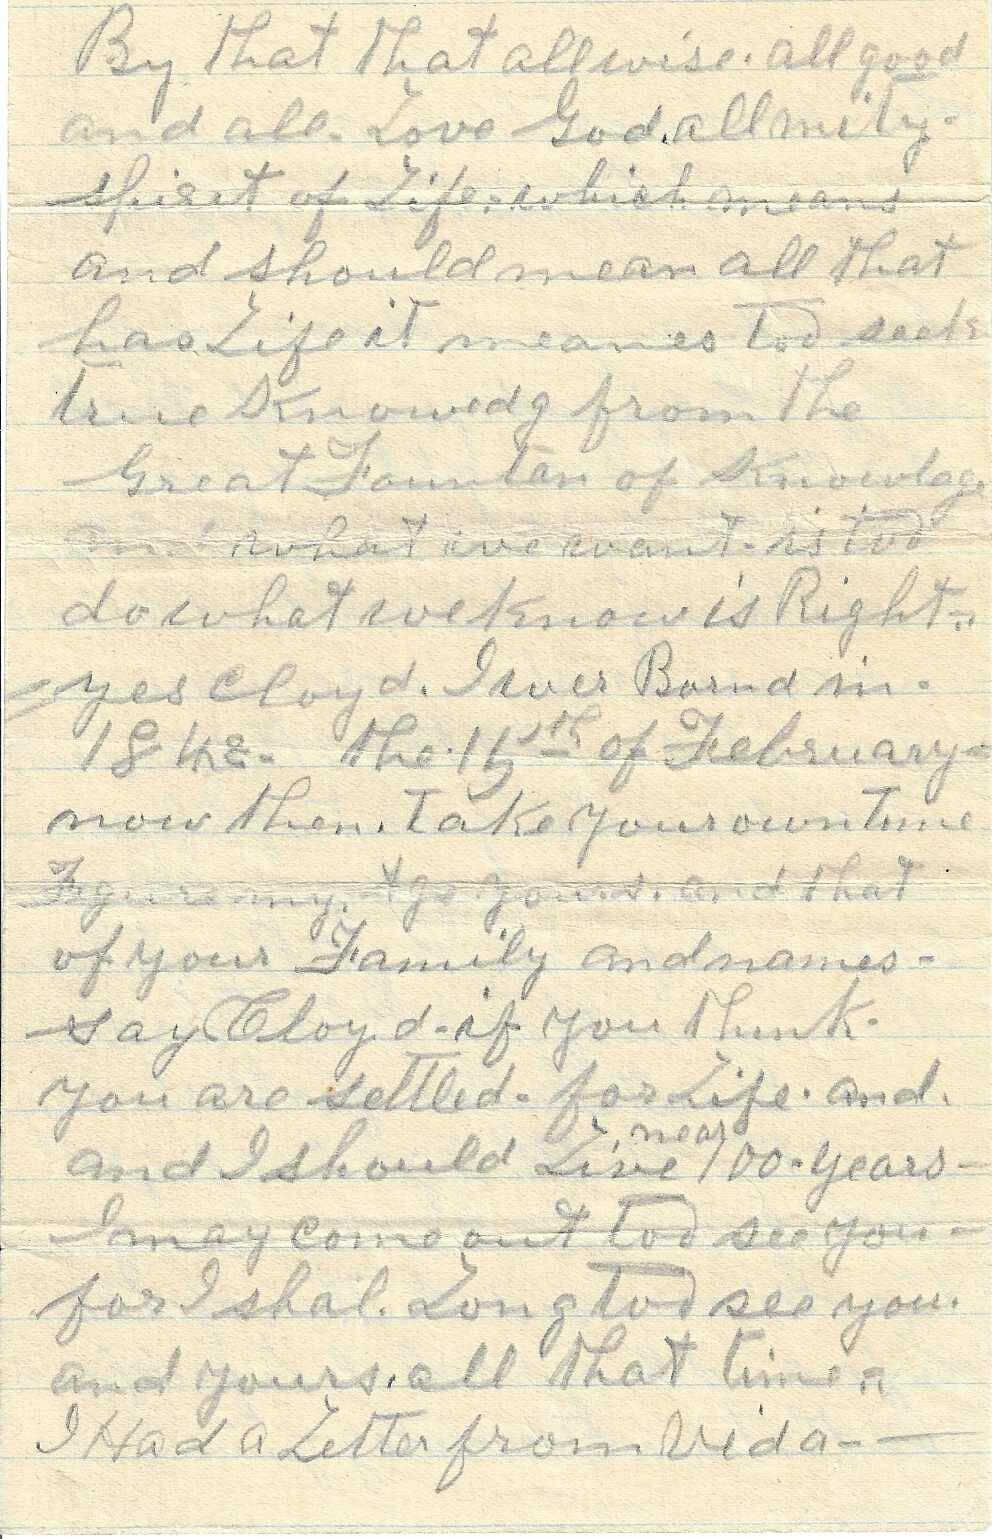 By that that allwise. all good
and all. Love God. allmity.
spirit of Life. which means
and should mean all that
has Life it meanes too seek
true Knowedg from the
Great Fountan of Knowlage
and what we want. is too
do what we know is Right..
= yes Cloyd. I wer Bornd in.
the 15th of February -
now then. take your own time
Figure my age yours. and that
of your Family and names -
say Cloyd. if you think.
you are settled. for Life. and.
and I should Live near 100. years -
I may come out too see you -
for I shal. Long too see you.
and yours. all that time..
I Had a Letter from Vida - —